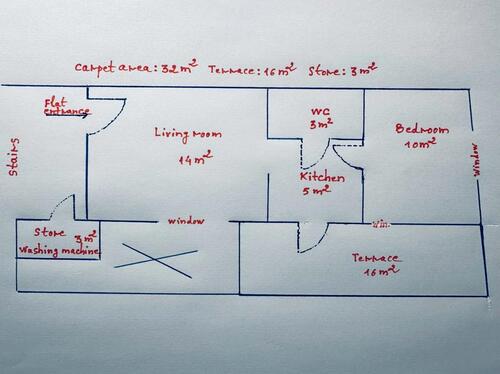 Carpet area: 32 m² Terrace: 16 m² Store: 3 m²
Flat
entrance
Stairs
Living room
14 m²
WC
3 m²
Bedroom
10 m²
window
Kitchen
5 m²
window
Win.
Store 3 m²
Washing machine
Terrace
16 m²